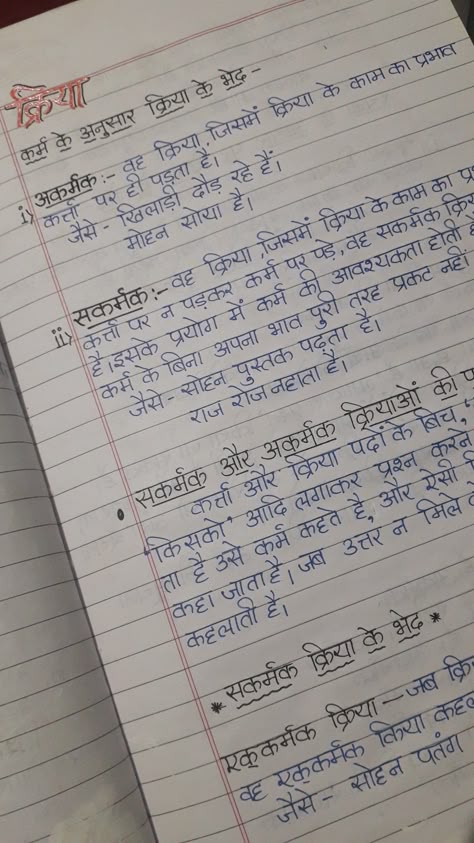 क्रिया
कर्म के अनुसार क्रिया के भेद -
i) अकर्मक :- वह क्रिया, जिसमें क्रिया के काम का प्रभाव
कर्त्ता पर ही पड़ता है।
जैसे - खिलाड़ी दौड़ रहे हैं।
मोहन सोया है।
ii) सकर्मक :- वह क्रिया, जिसमें क्रिया के काम का
कर्त्ता पर न पड़कर कर्म पर पड़े, वह सकर्मक
है। इसके प्रयोग में कर्म की आवश्यकता होती
कर्म के बिना अपना भाव पुरी तरह प्रकट नहीं
जैसे - सोहन पुस्तक पढ़ता है।
राज रोज नहाता है।
• सकर्मक और अकर्मक क्रियाओं की
कर्त्ता और क्रिया पदों के बिच,
"किसको" आदि लगाकर प्रश्न करने
ता है उसे कर्म कहते है, और ऐसी
कहा जाता है। जब उत्तर न मिले
कहलाती है।
* सकर्मक क्रिया के भेद *
एककर्मक क्रिया - जब
वह एककर्मक क्रिया
जैसे - सोहन पतंग